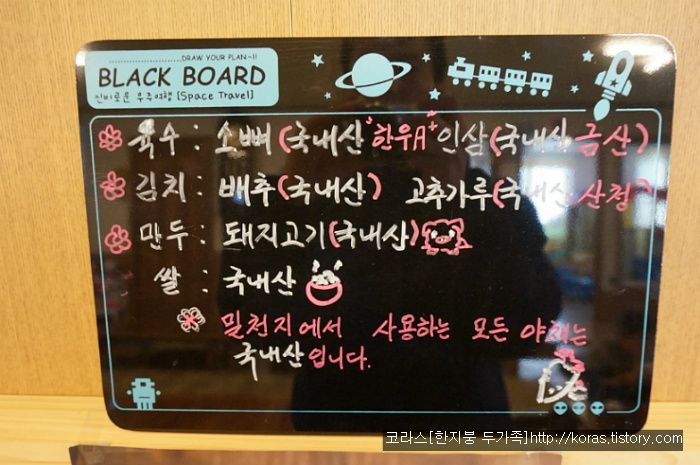 DRAW YOUR PLAN~!!
BLACK BOARD
신비로운 우주여행 [Space Travel]
육수 : 소뼈 (국내산 한우A+ 인삼 (국내산 금산)
김치 : 배추 (국내산) 고추가루 (국내산 산청)
만두 : 돼지고기 (국내산)
쌀 : 국내산
밀천지에서 사용하는 모든 야채는
국내산입니다.
코라스[한지붕 두가족]http://koras.tistory.com